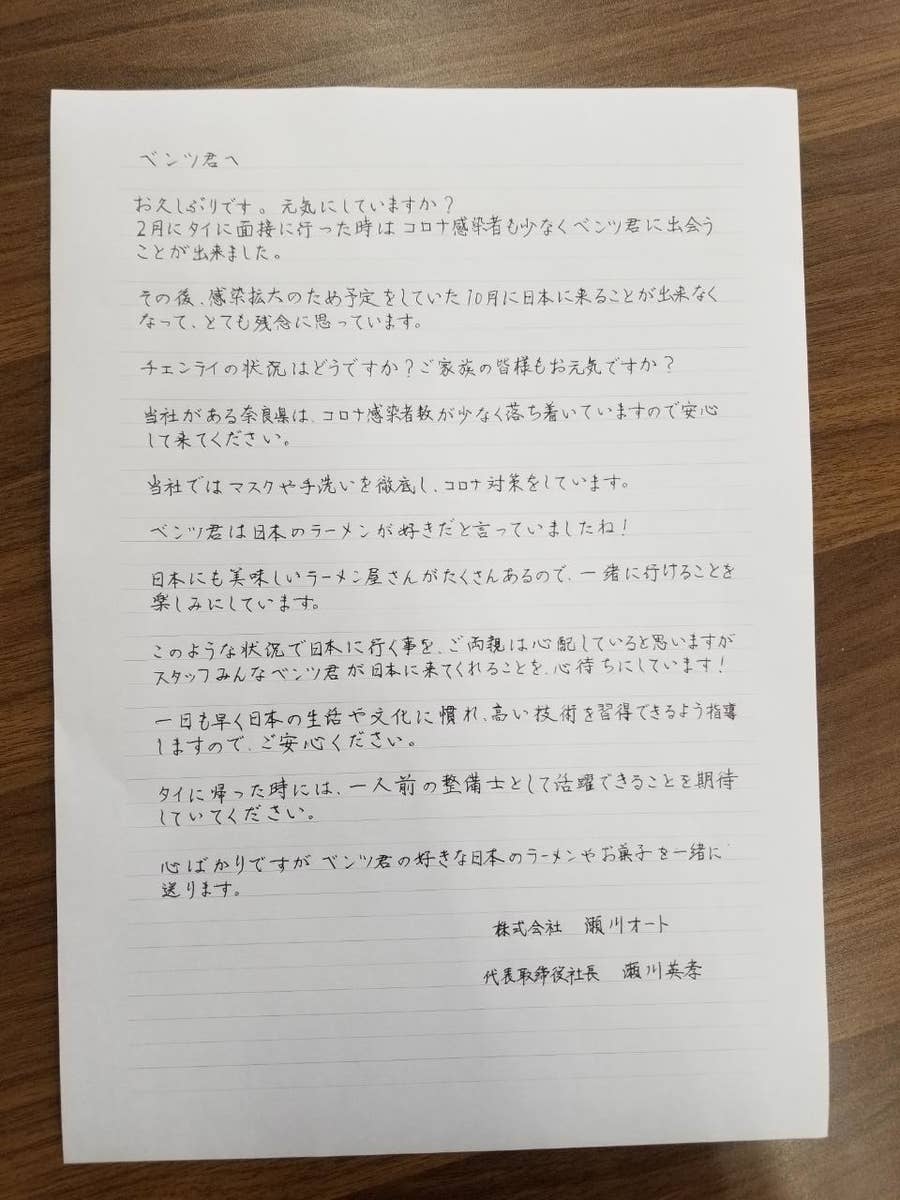 ベンツ君へ
お久しぶりです。元気にしていますか？
2月にタイに面接に行った時はコロナ感染者も少なくベンツ君に出会う
ことが出来ました。
その後、感染拡大のため予定をしていた10月に日本に来ることが出来なく
なって、とても残念に思っています。
チェンライの状況はどうですか？ご家族の皆様もお元気ですか？
当社がある奈良県は、コロナ感染者数が少なく落ち着いていますので安心
して来てください。
当社ではマスクや手洗いを徹底し、コロナ対策をしています。
ベンツ君は日本のラーメンが好きだと言っていましたね！
日本にも美味しいラーメン屋さんがたくさんあるので、一緒に行けることを
楽しみにしています。
このような状況で日本に行く事を、ご両親は心配していると思いますが
スタッフみんなベンツ君が日本に来てくれることを、心待ちにしています！
一日も早く日本の生活や文化に慣れ、高い技術を習得できるよう指導
しますので、ご安心ください。
タイに帰った時には、一人前の整備士として活躍できることを期待
していてください。
心ばかりですがベンツ君の好きな日本のラーメンやお菓子を一緒に
送ります。
株式会社 瀬川オート
代表取締役社長 瀬川英孝